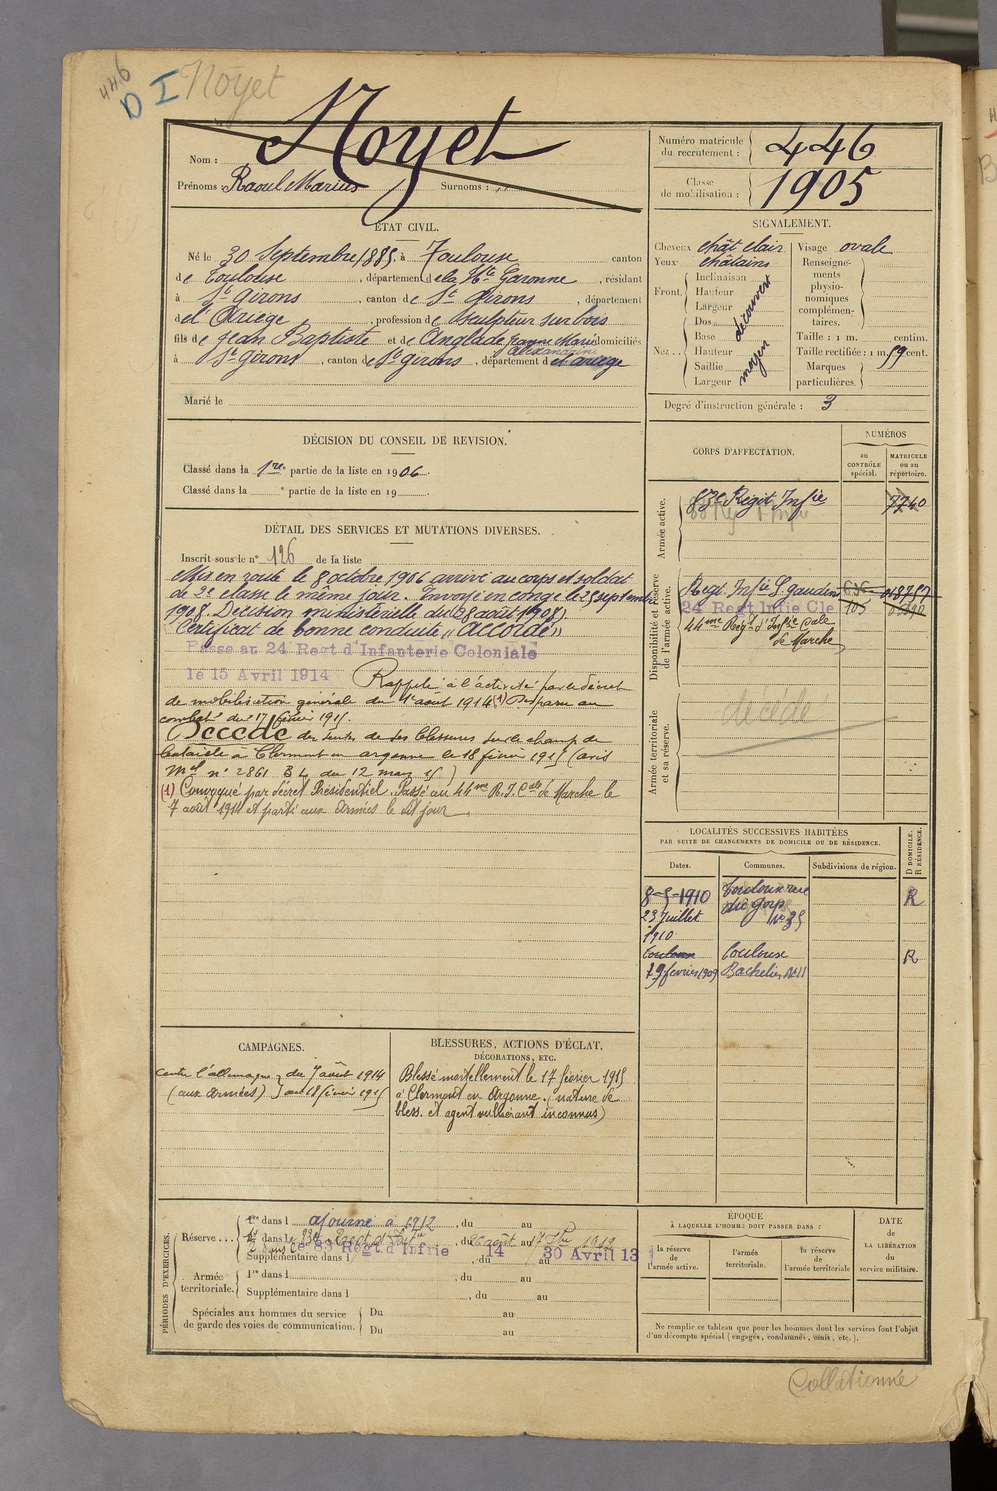 446
D I Noyet
Nom : Noyet
Prénoms : Raoul Marius Surnoms : "
Numéro matricule du recrutement : 446
Classe de mobilisation : 1905
ÉTAT CIVIL.
Né le 30 Septembre 1885, à Toulouse canton
de Toulouse, département de la Hte Garonne, résidant
à St Girons, canton de St Girons, département
de l'Ariège, profession de sculpteur sur bois
fils de Jean Baptiste et de Anglade Jeanne Marie Alexandrine domiciliés
à St Girons, canton de St Girons, département de l'ariège
Marié le
SIGNALEMENT.
Cheveux chât clair
Yeux châtains
Front. Inclinaison
Hauteur
Largeur
découvert
Nez.. Dos
Base
Hauteur
Saillie
Largeur
moyen
Visage ovale
Renseignements physionomiques complémentaires.
Taille : 1 m. centim.
Taille rectifiée : 1 m. 59 cent.
Marques particulières.
Degré d'instruction générale : 3
DÉCISION DU CONSEIL DE REVISION.
Classé dans la 1re partie de la liste en 1906.
Classé dans la e partie de la liste en 19
DÉTAIL DES SERVICES ET MUTATIONS DIVERSES.
Inscrit sous le n° 126 de la liste
Mis en route le 8 octobre 1906 arrivé au corps et soldat
de 2e classe le même jour. Envoyé en congé le 25 septembre
1908. Décision ministérielle du (28 août 1908).
Certificat de bonne conduite "Accordé"
Passé au 24 Regt d'Infanterie Coloniale
le 15 Avril 1914
Rappelé à l'activité par le décret
de mobilisation générale du 1er août 1914 (1) Disparu au
combat du 17 février 1915.
Décédé des suites de ses blessures sur le champ de
bataille à Clermont en argonne le 18 février 1915 (avis
Mel n° 2861 B 4 du 12 mars 15)
(1) Convoqué par décret Présidentiel. Passé au 44me R. I. Cale de Marche le
7 août 1914 et parti aux Armées le dit jour
CORPS D'AFFECTATION.
NUMÉROS
au CONTRÔLE spécial.
MATRICULE ou au répertoire.
Armée active.
83e Régit Infie 7740
Disponibilité et réserve de l'armée active.
Regt. Infie St gaudens 636
24 Regt Infie Cle 105
44me Regt d'Infie Cale
de Marche
Armée territoriale et sa réserve.
décédé
LOCALITÉS SUCCESSIVES HABITÉES
PAR SUITE DE CHANGEMENTS DE DOMICILE OU DE RÉSIDENCE.
Dates. Communes. Subdivisions de région. D DOMICILE. R RÉSIDENCE.
8-5-1910 Toulouse rue R
23 Juillet N° 35
1910
Toulouse R
19 février 1909 Bachelier N° 11
CAMPAGNES.
Contre l'allemagne du 7 août 1914
(aux Armées) au 18 février 1915
BLESSURES, ACTIONS D'ÉCLAT,
DÉCORATIONS, ETC.
Blessé mortellement le 17 février 1915
à Clermont en Argonne. (nature de
bless. et agent vulnérant inconnus)
PÉRIODES D'EXERCICES.
Réserve... 1re dans l ajourné à 1912, du au
2e dans le 83e Regt d'Infie, du 26 août au
le 83 Regt d'Infrie 14 30 Avril 13
Supplémentaire dans l, du au
Armée territoriale. 1re dans l, du au
Supplémentaire dans l, du au
Spéciales aux hommes du service de garde des voies de communication. Du au
Du au
ÉPOQUE
À LAQUELLE L'HOMME DOIT PASSER DANS :
la réserve de l'armée active.
l'armée territoriale.
la réserve de l'armée territoriale
DATE DE LA LIBÉRATION du service militaire.
Ne remplir ce tableau que pour les hommes dont les services font l'objet
d'un décompte spécial (engagés, condamnés, omis, etc.).
Collationné